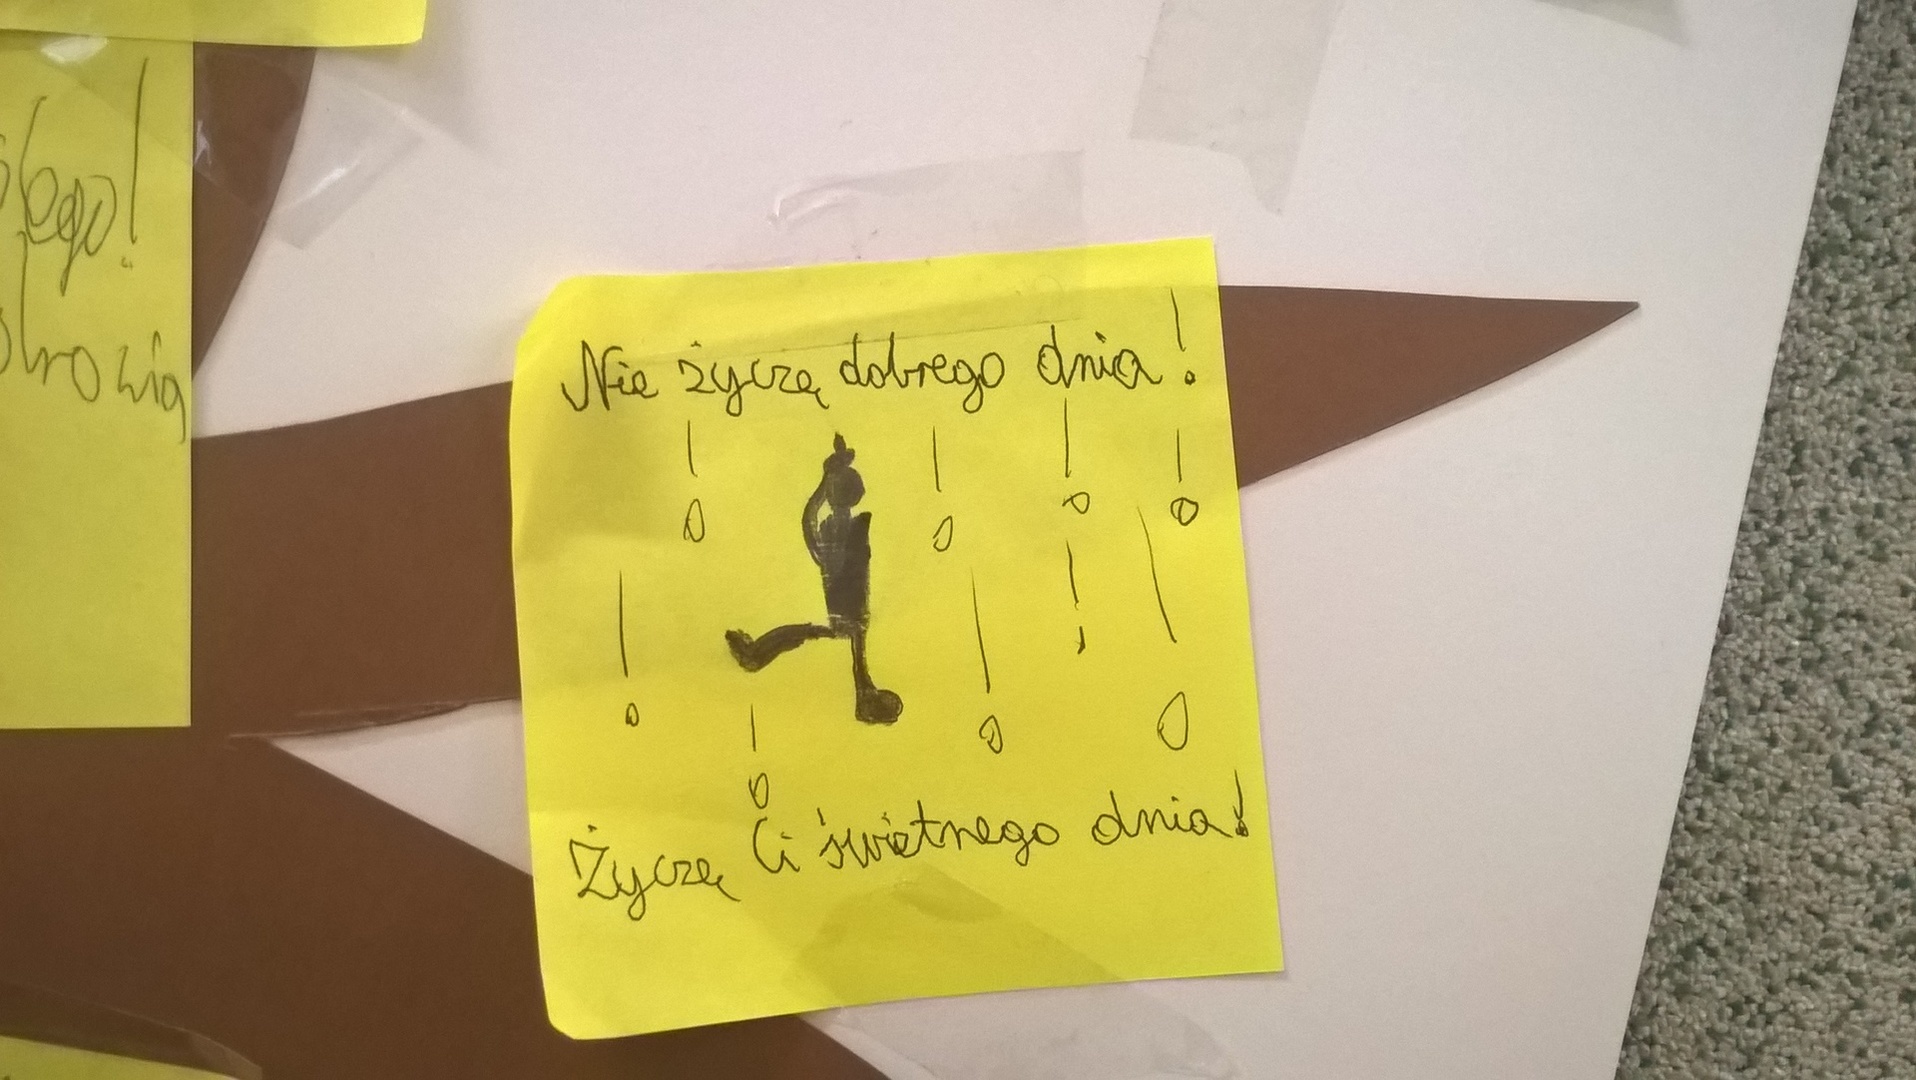 Nie życzę dobrego dnia!
Życzę Ci świetnego dnia!